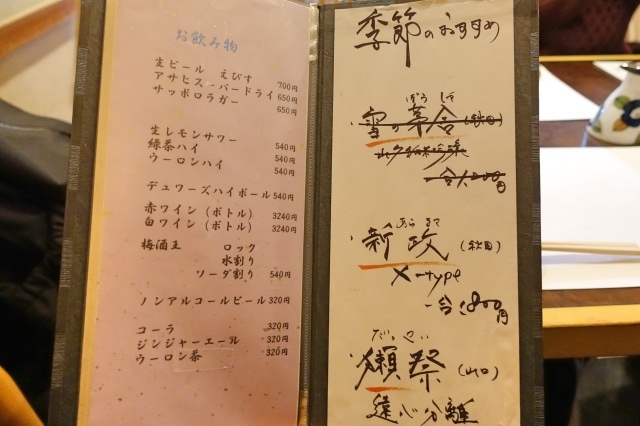 お飲み物
生ビール えびす 700円
アサヒスーパードライ 650円
サッポロラガー 650円
生レモンサワー 540円
緑茶ハイ 540円
ウーロンハイ 540円
デュワーズハイボール 540円
赤ワイン（ボトル） 3240円
白ワイン（ボトル） 3240円
梅酒王 ロック
水割り
ソーダ割り 540円
ノンアルコールビール 320円
コーラ 320円
ジンジャーエール 320円
ウーロン茶 320円
季節のおすすめ
ぼう しゃ
雪の茅舎（秋田）
山夕
一合
円
あら まさ
新政（秋田）
X-type
一合 1,800円
だっさい
獺祭（山口）
遠心分離